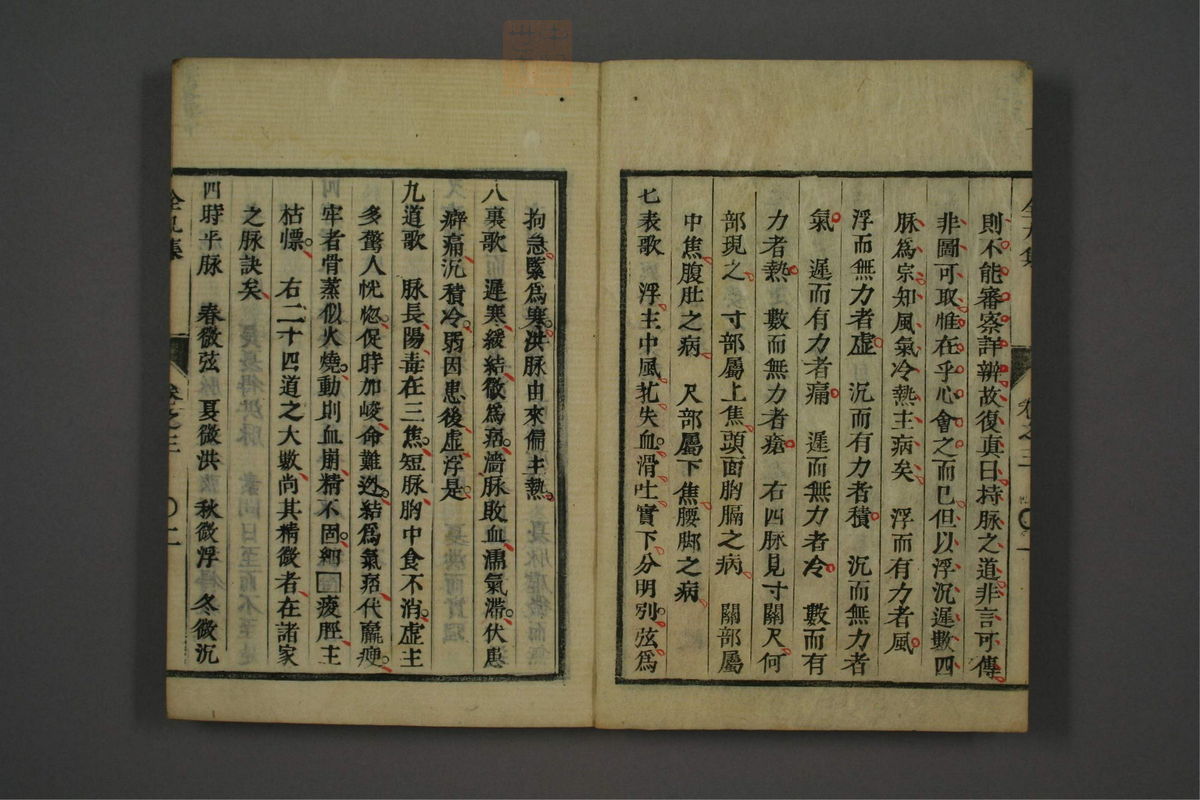 則不能審察詳辨故復眞曰持脉之道非言可傳
非圖可取惟在乎心會之而已但以浮沉遲數四
脉爲宗知風氣冷熱主病矣　浮而有力者風
浮而無力者虛　沉而有力者積　沉而無力者
氣　遲而有力者痛　遲而無力者冷　數而有
力者熱　數而無力者瘡　右四脉見寸關尺何
部現之　寸部屬上焦頭面胸膈之病　關部屬
中焦腹肚之病　尺部屬下焦腰脚之病
七表歌　浮主中風芤失血滑吐實下分明別弦爲
拘急緊爲寒洪脉由來偏主熱
八裏歌　遲寒緩結微爲痞濇脉敗血濡氣滯伏患
癖痛沉積冷弱因患後虛浮是
九道歌　脉長陽毒在三焦短脉胸中食不消虛主
多驚人恍惚促時加峻命難迯結爲氣痞代羸瘦
牢者骨蒸似火燒動則血崩精不固細□痠脛主
枯慓　右二十四道之大數尚其精微者在諸家
之脉訣矣
四時平脉　春微弦　夏微洪　秋微浮　冬微沉
卷之三
卷之三　〇二